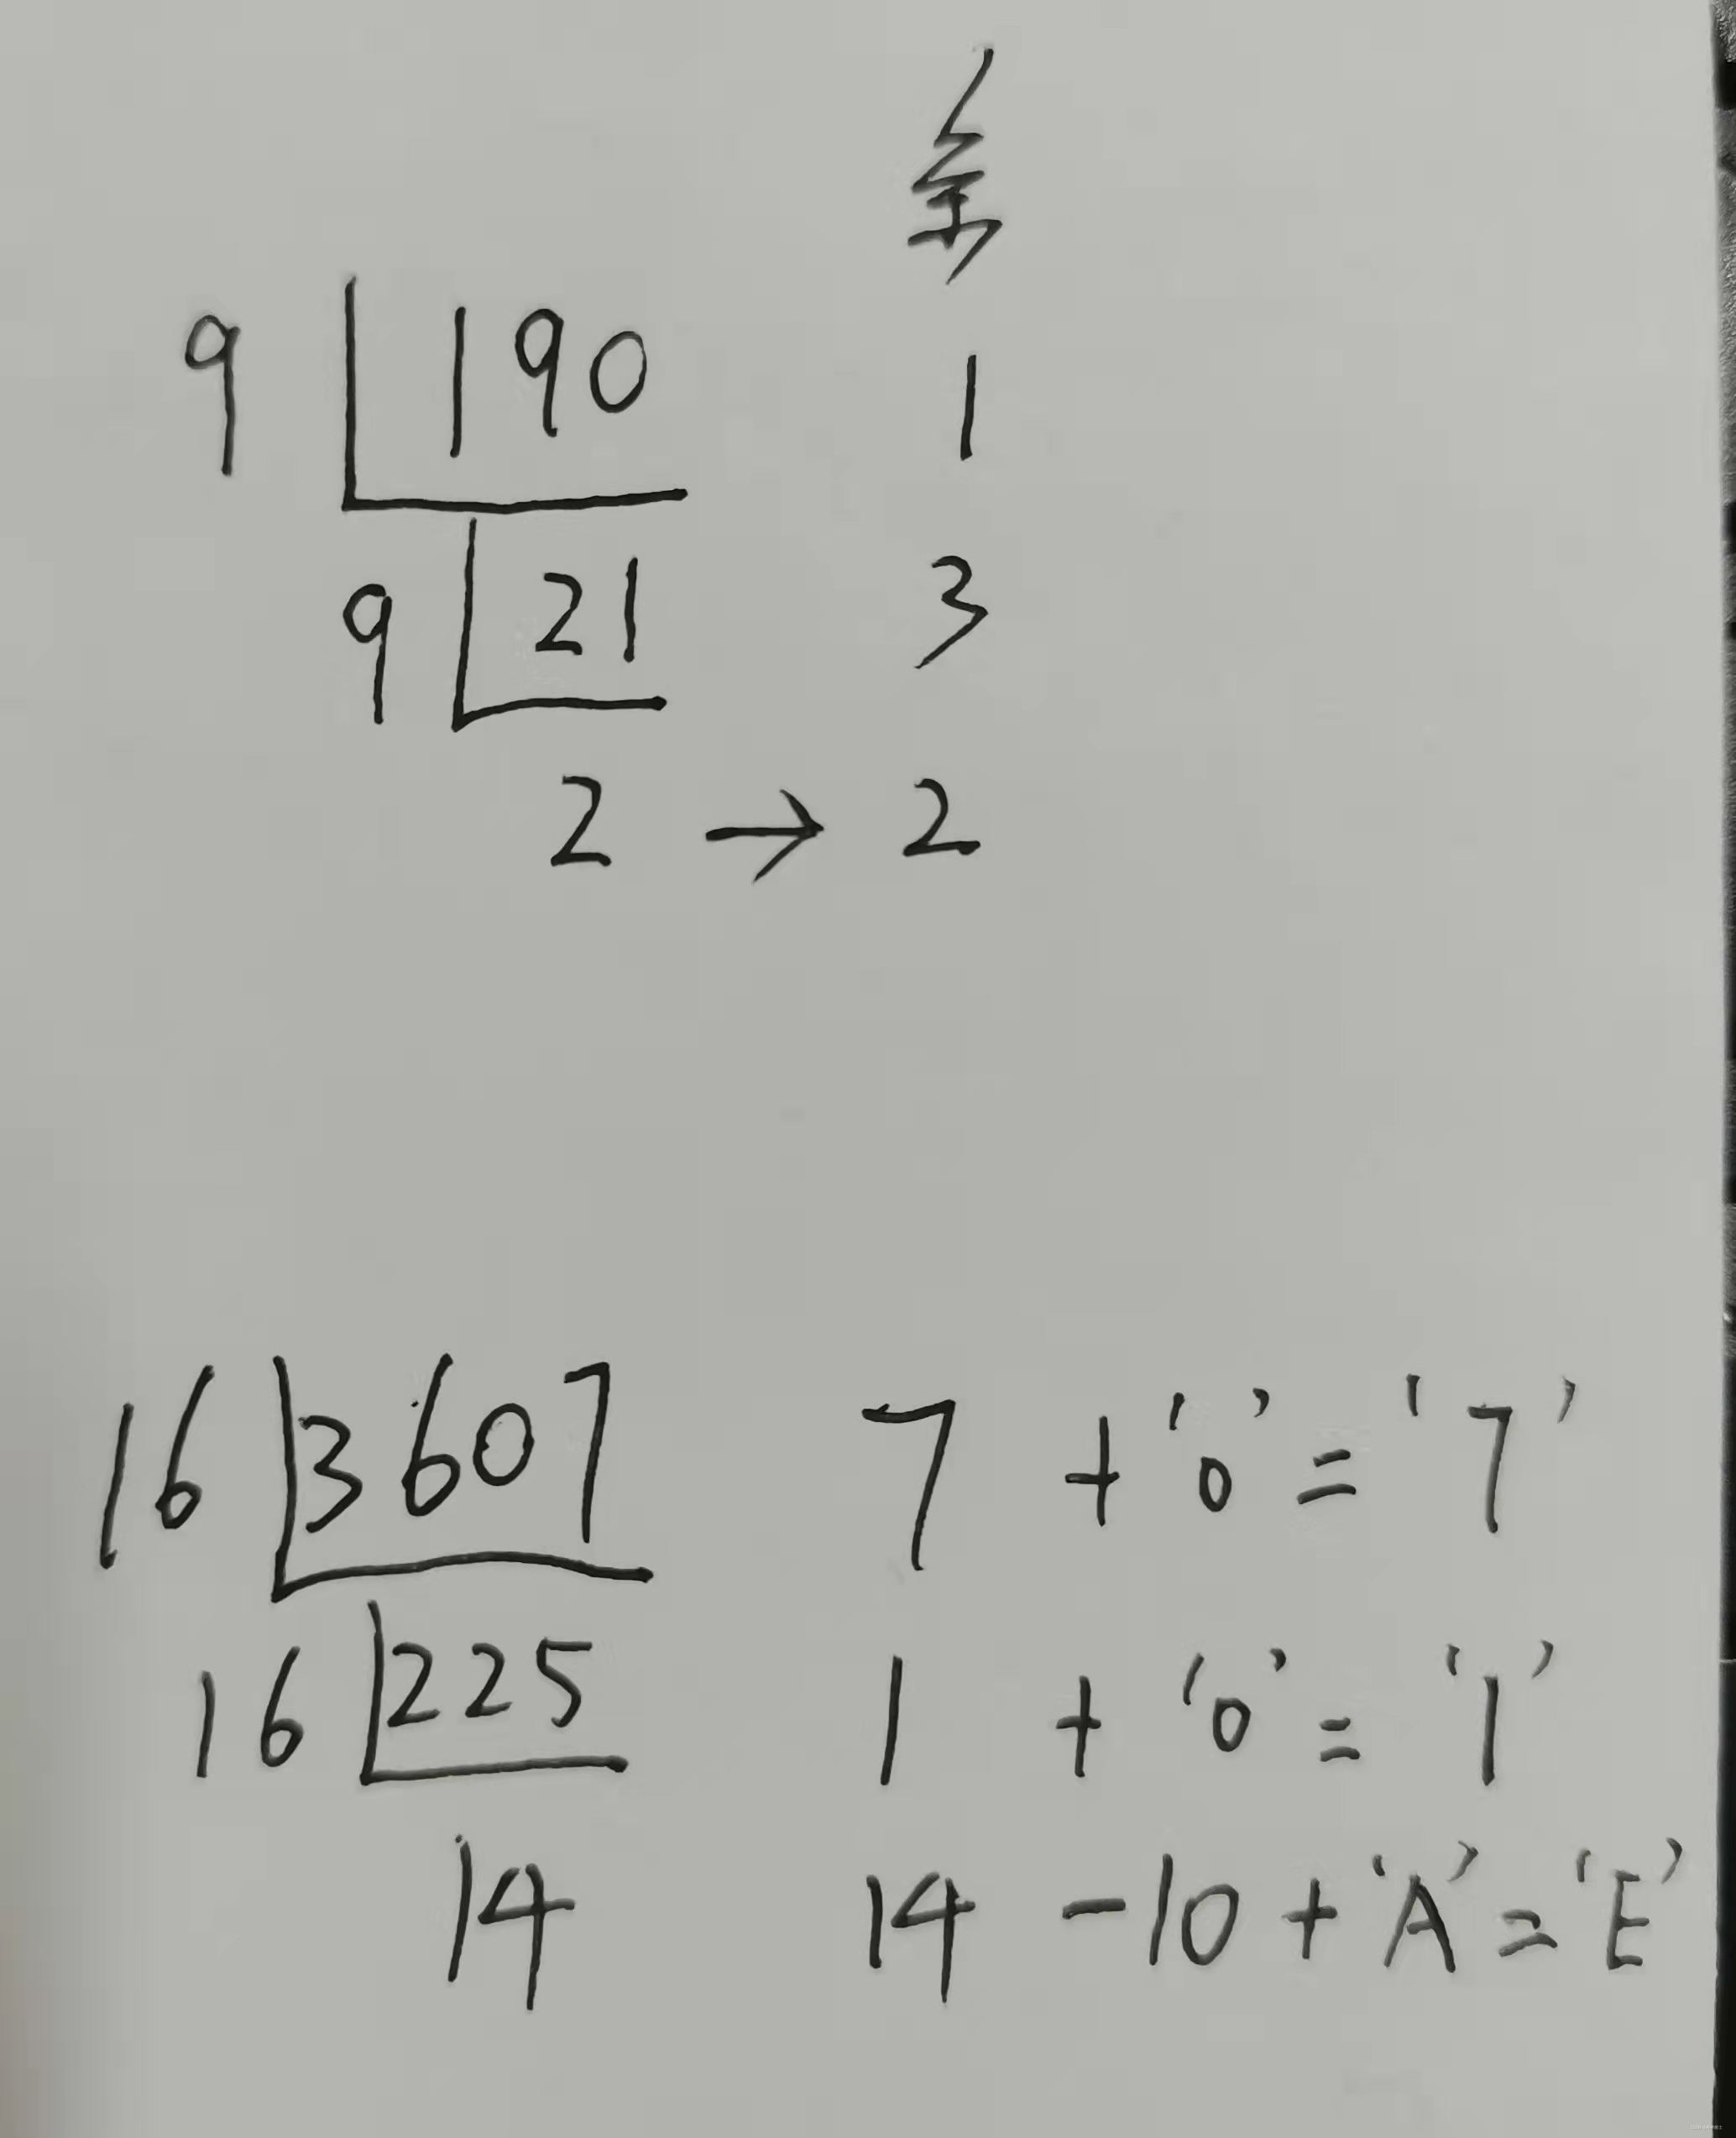 余
9 190 1
9 21 3
2 → 2
16 3607 7 + '0' = '7'
16 225 1 + '0' = '1'
14 14 - 10 + 'A' = 'E'